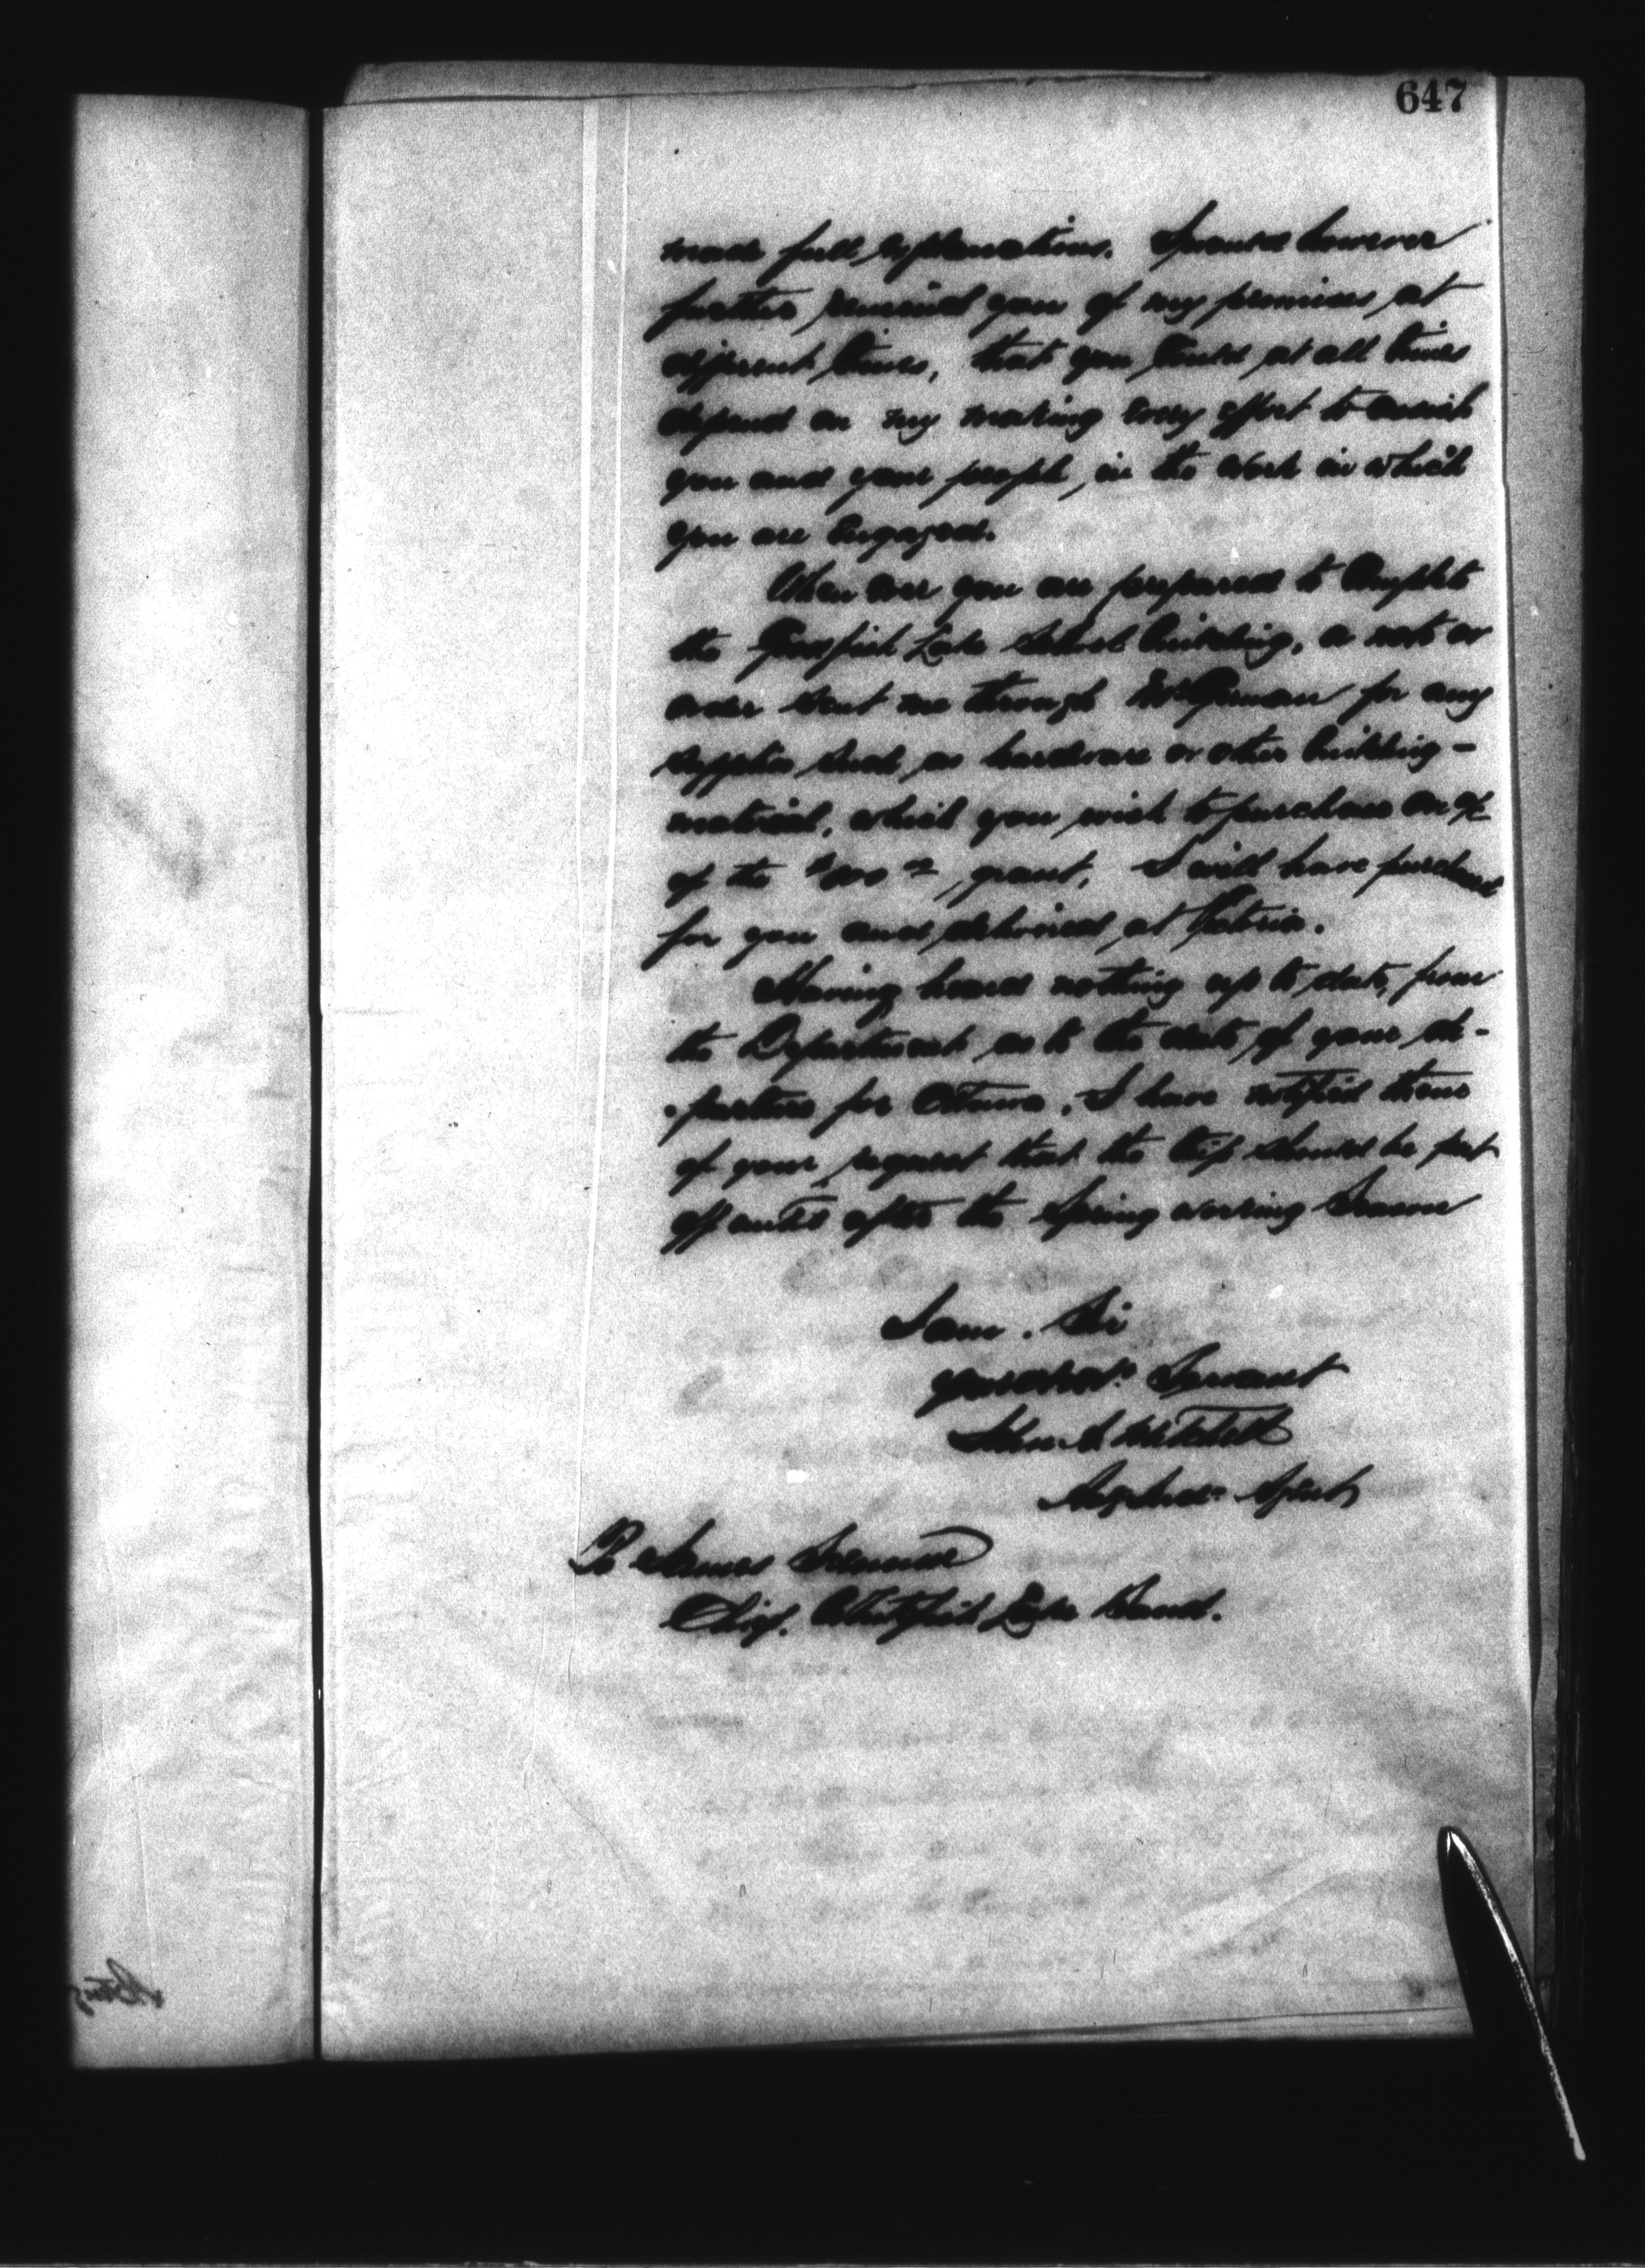 647
made full explanations. I would however
further remind you of my promises at
different times, that you could at all times
depend on my making every effort to assist
you and your people, in the work in which
you are engaged.
When ever you are prepared to complete
the Lake School building, a note or
order sent me through Mr for any
supplies such as hardware or other building-
material, which you wish to purchase on a/c
of the grant, I will have purchased
for you and delivered at
Having heard nothing up to date, from
the Department as to the date of your de-
parture for Ottawa, I have notified them
of your request that the trip should be put
off until after the Spring working Season
I am. Sir
your obdt. Servant
John A. Mitchell
To James
Chief. Whitefish Lake Band.